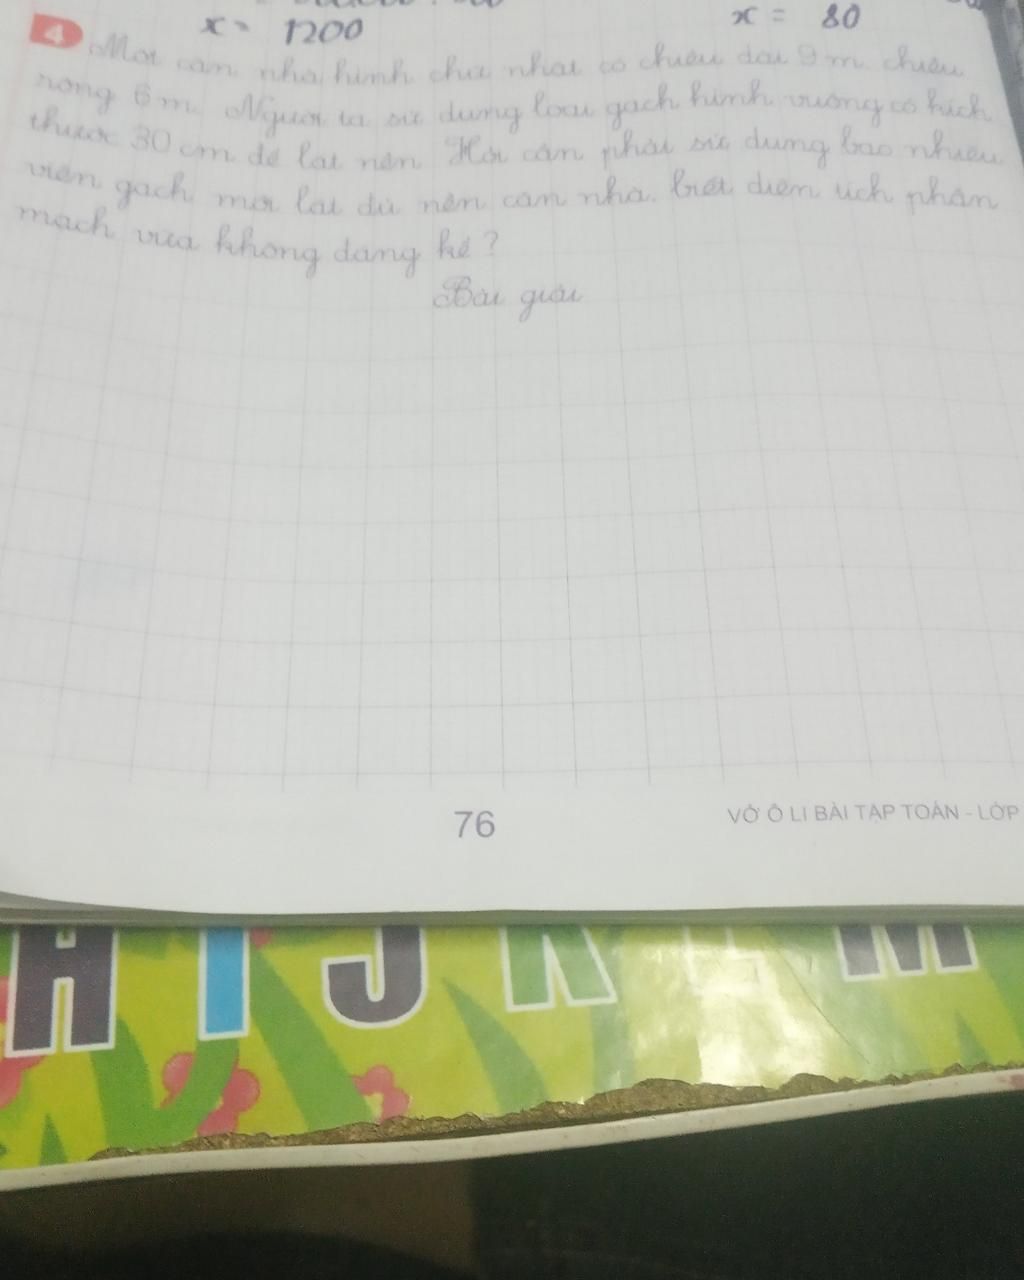 x = 1200 x = 80
4 Một căn nhà hình chữ nhật có chiều dài 9 m, chiều
rộng 6 m. Người ta sử dụng loại gạch hình vuông có kích
thước 30 cm để lát nền. Hỏi cần phải sử dụng bao nhiêu
viên gạch mới lát đủ nền căn nhà, biết diện tích phần
mạch vữa không đáng kể?
Bài giải
76
VỞ Ô LI BÀI TẬP TOÁN - LỚP
H I J K L M